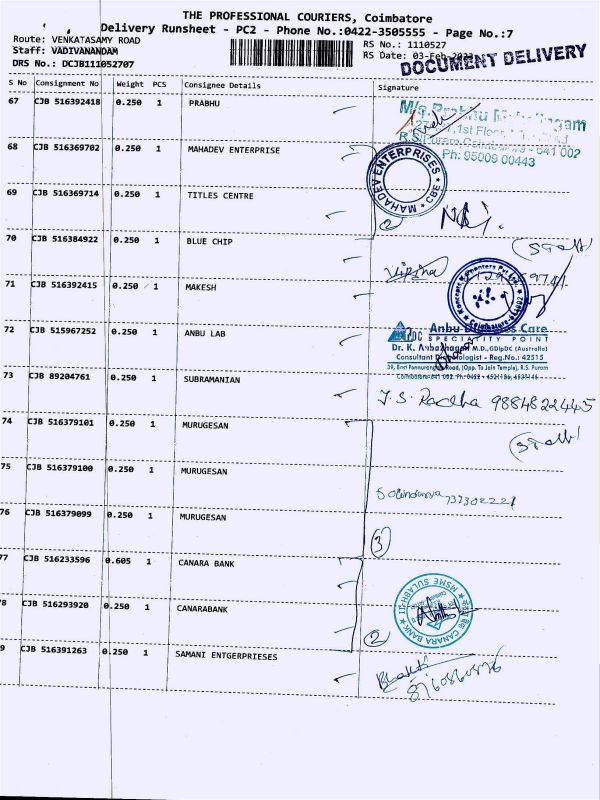 THE PROFESSIONAL COURIERS, Coimbatore
Delivery Runsheet - PC2 - Phone No.:0422-3505555 - Page No.:7
Route: VENKATASAMY ROAD
Staff: VADIVANANDAM
DRS No.: DCJB111052707
RS No.: 1110527
RS Date: 03-Feb-2023
DOCUMENT DELIVERY
S No Consignment No Weight PCS Consignee Details Signature
67 CJB 516392418 0.250 1 PRABHU
M/s. Prabhu
1st Floor
641 002
Ph: 95009 00443
68 CJB 516369702 0.250 1 MAHADEV ENTERPRISE
MAHADEV ENTERPRISES ★ CBE ★
2
69 CJB 516369714 0.250 1 TITLES CENTRE
70 CJB 516384922 0.250 1 BLUE CHIP
71 CJB 516392415 0.250 1 MAKESH
72 CJB 515967252 0.250 1 ANBU LAB
Anbu Diabetes Care
SPECIALITY POINT
Dr. K. Anbazhagan M.D., GDipDC (Australia)
Consultant Diabetologist - Reg.No.: 42515
Road, (Opp. To Jain Temple), R.S. Puram
73 CJB 89204761 0.250 1 SUBRAMANIAN
J.S. Radha 9884822445
74 CJB 516379101 0.250 1 MURUGESAN
75 CJB 516379100 0.250 1 MURUGESAN
76 CJB 516379099 0.250 1 MURUGESAN
3
77 CJB 516233596 0.605 1 CANARA BANK
78 CJB 516293920 0.250 1 CANARABANK
CANARA BANK ★ MSME SULABH-II
2
9 CJB 516391263 0.250 1 SAMANI ENTGERPRIESES
Bhakti
8760860876